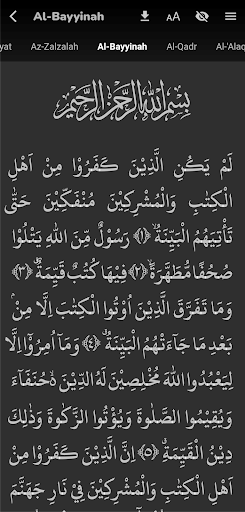 Al-Bayyinah AA
yat Az-Zalzalah Al-Bayyinah Al-Qadr Al-'Alaq
بِسْمِ اللّٰهِ الرَّحْمٰنِ الرَّحِيْمِ
لَمْ يَكُنِ الَّذِيْنَ كَفَرُوْا مِنْ اَهْلِ
الْكِتٰبِ وَالْمُشْرِكِيْنَ مُنْفَكِّيْنَ حَتّٰى
تَأْتِيَهُمُ الْبَيِّنَةُۙ ﴿١﴾ رَسُوْلٌ مِّنَ اللّٰهِ يَتْلُوْا
صُحُفًا مُّطَهَّرَةًۙ ﴿٢﴾ فِيْهَا كُتُبٌ قَيِّمَةٌؕ ﴿٣﴾
وَمَا تَفَرَّقَ الَّذِيْنَ اُوْتُوا الْكِتٰبَ اِلَّا مِنْۢ
بَعْدِ مَا جَآءَتْهُمُ الْبَيِّنَةُؕ ﴿٤﴾ وَمَاۤ اُمِرُوْۤا اِلَّا
لِيَعْبُدُوا اللّٰهَ مُخْلِصِيْنَ لَهُ الدِّيْنَ ۙ حُنَفَآءَ
وَيُقِيْمُوا الصَّلٰوةَ وَيُؤْتُوا الزَّكٰوةَ وَذٰلِكَ
دِيْنُ الْقَيِّمَةِؕ ﴿٥﴾ اِنَّ الَّذِيْنَ كَفَرُوْا مِنْ
اَهْلِ الْكِتٰبِ وَالْمُشْرِكِيْنَ فِيْ نَارِ جَهَنَّمَ